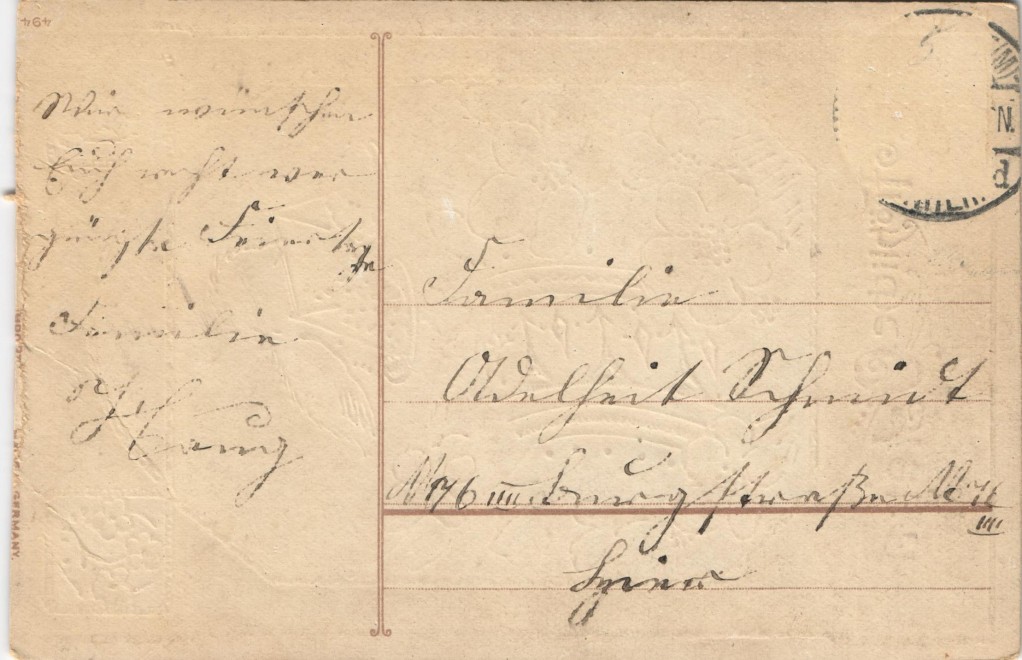 494
Wir wünschen
Euch recht ver
gnügte Feierta
ge
Familie
Haug
Familie
Adelheit Schmidt
No 76 IIII Burgstraße No 76
IIII
hier
GERMANY.